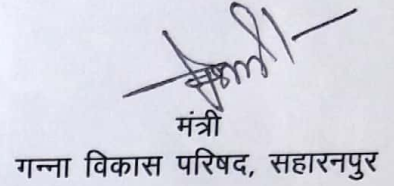 मंत्री
गन्ना विकास परिषद, सहारनपुर